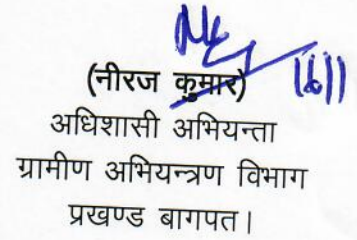 (नीरज कुमार) 16/1
अधिशासी अभियन्ता
ग्रामीण अभियन्त्रण विभाग
प्रखण्ड बागपत।